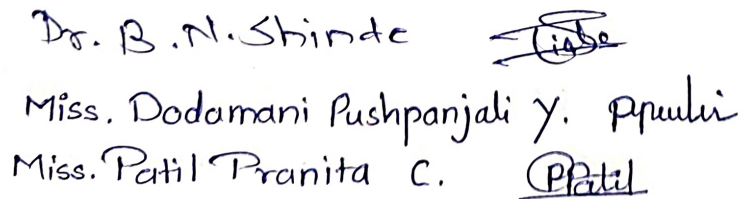 Dr. B.N. Shinde
Miss. Dodamani Pushpanjali Y.
Miss. Patil Pranita C. PPatil